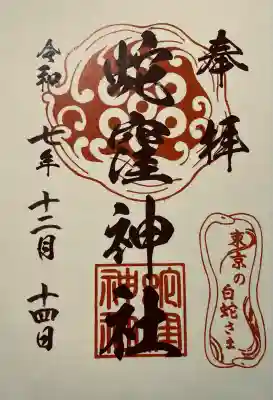 奉拝
蛇窪神社
東京の
白蛇さま
令和七年十二月十四日